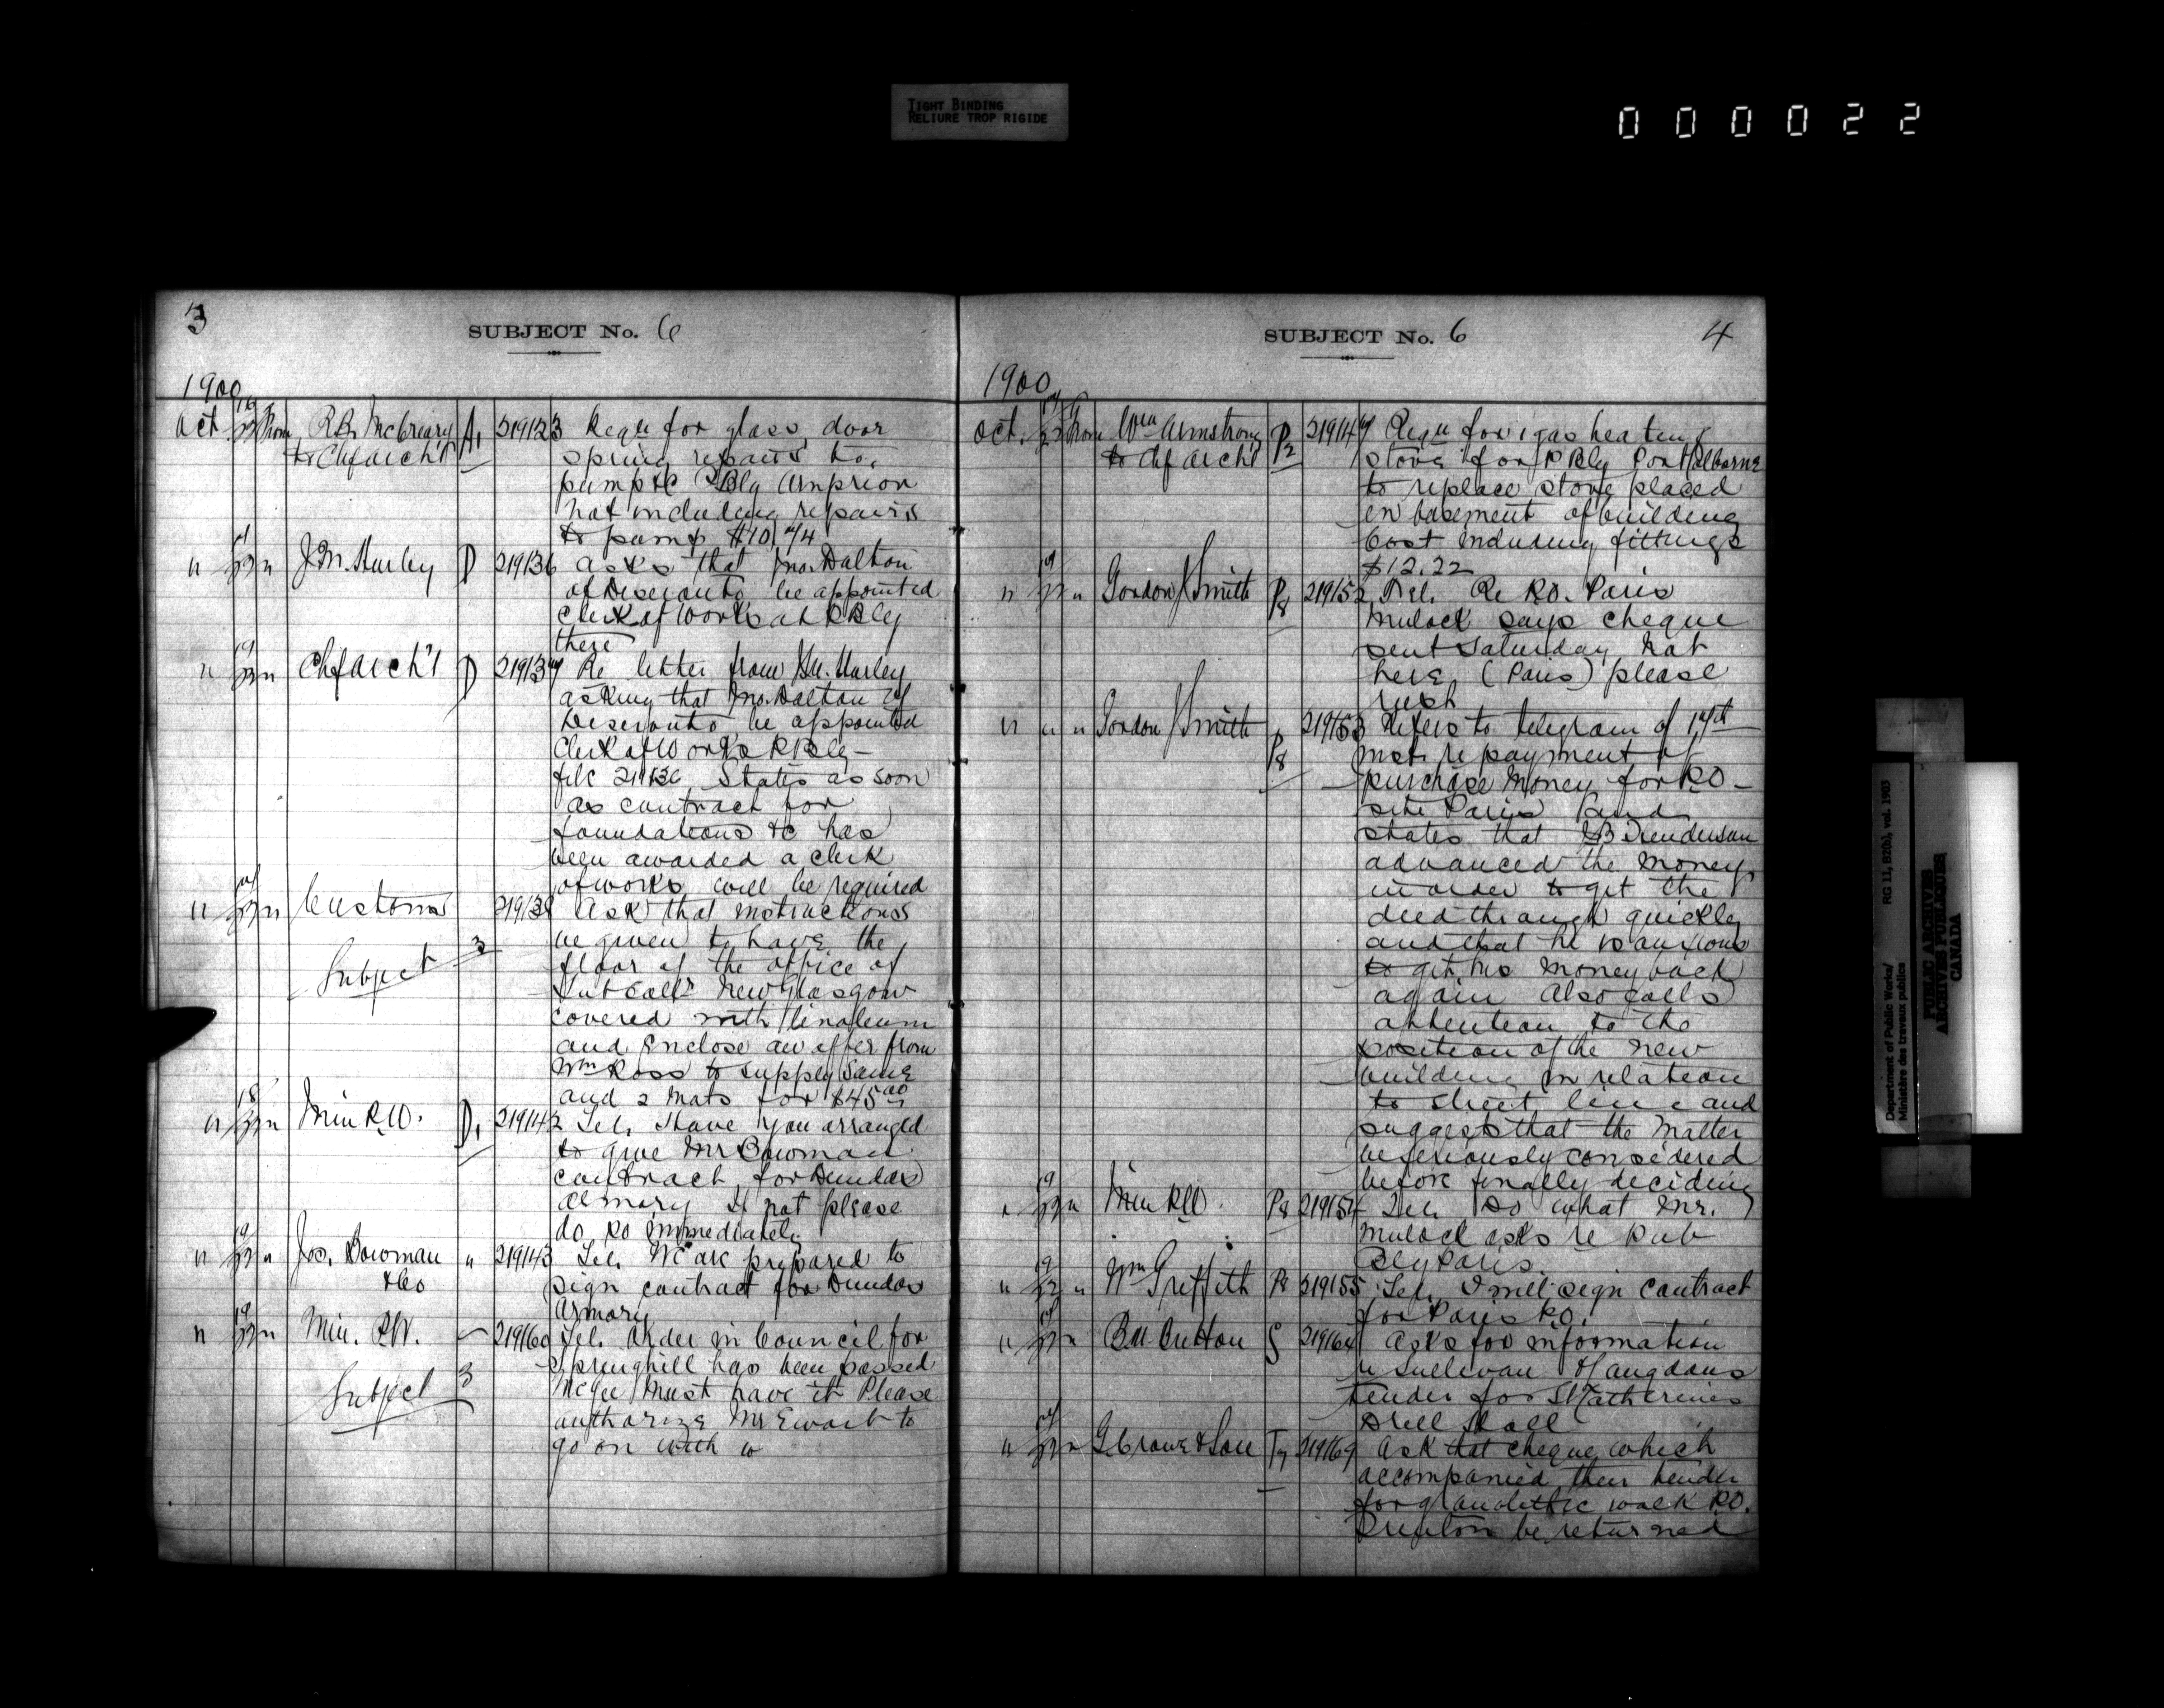 TIGHT BINDING
RELIURE TROP RIGIDE
000022
3
SUBJECT No. 6
1900
Oct. From R.B. McCreary A1 219123 Reqn for glass, door
to Chf Archt spring repairs to
pump &c P Bly Arnprior
not including repairs
to pump $10.74
" " J.M. Hurley D 219136 Asks that Jno. Dalton
of Deseronto be appointed
Clerk of Works at P Bly
there
" " Chf Arch't D 219137 Re letter from J.M. Hurley
asking that Jno. Dalton of
Deseronto be appointed
Clerk of Works P Bly —
file 219136 States as soon
as contract for
foundations &c has
been awarded a clerk
of works will be required
" " Customs 219138 Ask that instructions
Subject 3 be given to have the
floor of the office of
Sub Collr New Glasgow
covered with linoleum
and enclose an offer from
Wm Ross to supply same
and 2 mats for $45.00
" 18 " Min P.W. D1 219142 Tel. Have you arranged
to give Mr Bowman
contract for Dundas
Armory If not please
do so immediately
" 19 " Jos. Bowman " 219143 Tel. We are prepared to
& Co sign contract for Dundas
Armory
" 19 " Min. P.W. 219160 Tel. Order in Council for
Springhill has been passed
Subject 3 McGee must have it Please
authorize Mr Ewart to
go on with w
SUBJECT No. 6
4
1900
Oct. From Wm Armstrong P2 219147 Reqn for 1 gas heating
to Chf Archt stove for P Bly Port Colborne
to replace stove placed
in basement of building
Cost including fittings
$12.22
" 19 " Gordon J Smith P8 219152 Tel. Re P.O. Paris
Mulock says cheque
sent Saturday Not
here (Paris) please
rush
" " " Gordon J Smith P8 219153 Refers to telegram of 17th
inst re payment of
purchase money for P.O.—
site Paris and
states that Henderson
advanced the money
in order to get the
deed through quickly
and that he is anxious
to get his money back
again Also calls
attention to the
position of the new
building in relation
to street line and
suggests that the matter
be seriously considered
before finally deciding
" 19 " Min P.W. P8 219154 Tel. Do what Mr.
Mulock asks re Pub
Bly Paris.
" 19 " Wm Griffith P8 219155 Tel. I will sign contract
for Paris P.O.
" " B.M. Britton S 219164 Asks for information
re Sullivan & Langdons
tender for St Catherines
Drill Hall
" " G. Crowe & Son T7 219169 Ask that cheque which
accompanied their tender
for granolithic walk P.O.
be returned
Department of Public Works/ RG 11, B2(b), vol. 1903
Ministère des travaux publics
PUBLIC ARCHIVES
ARCHIVES PUBLIQUES
CANADA